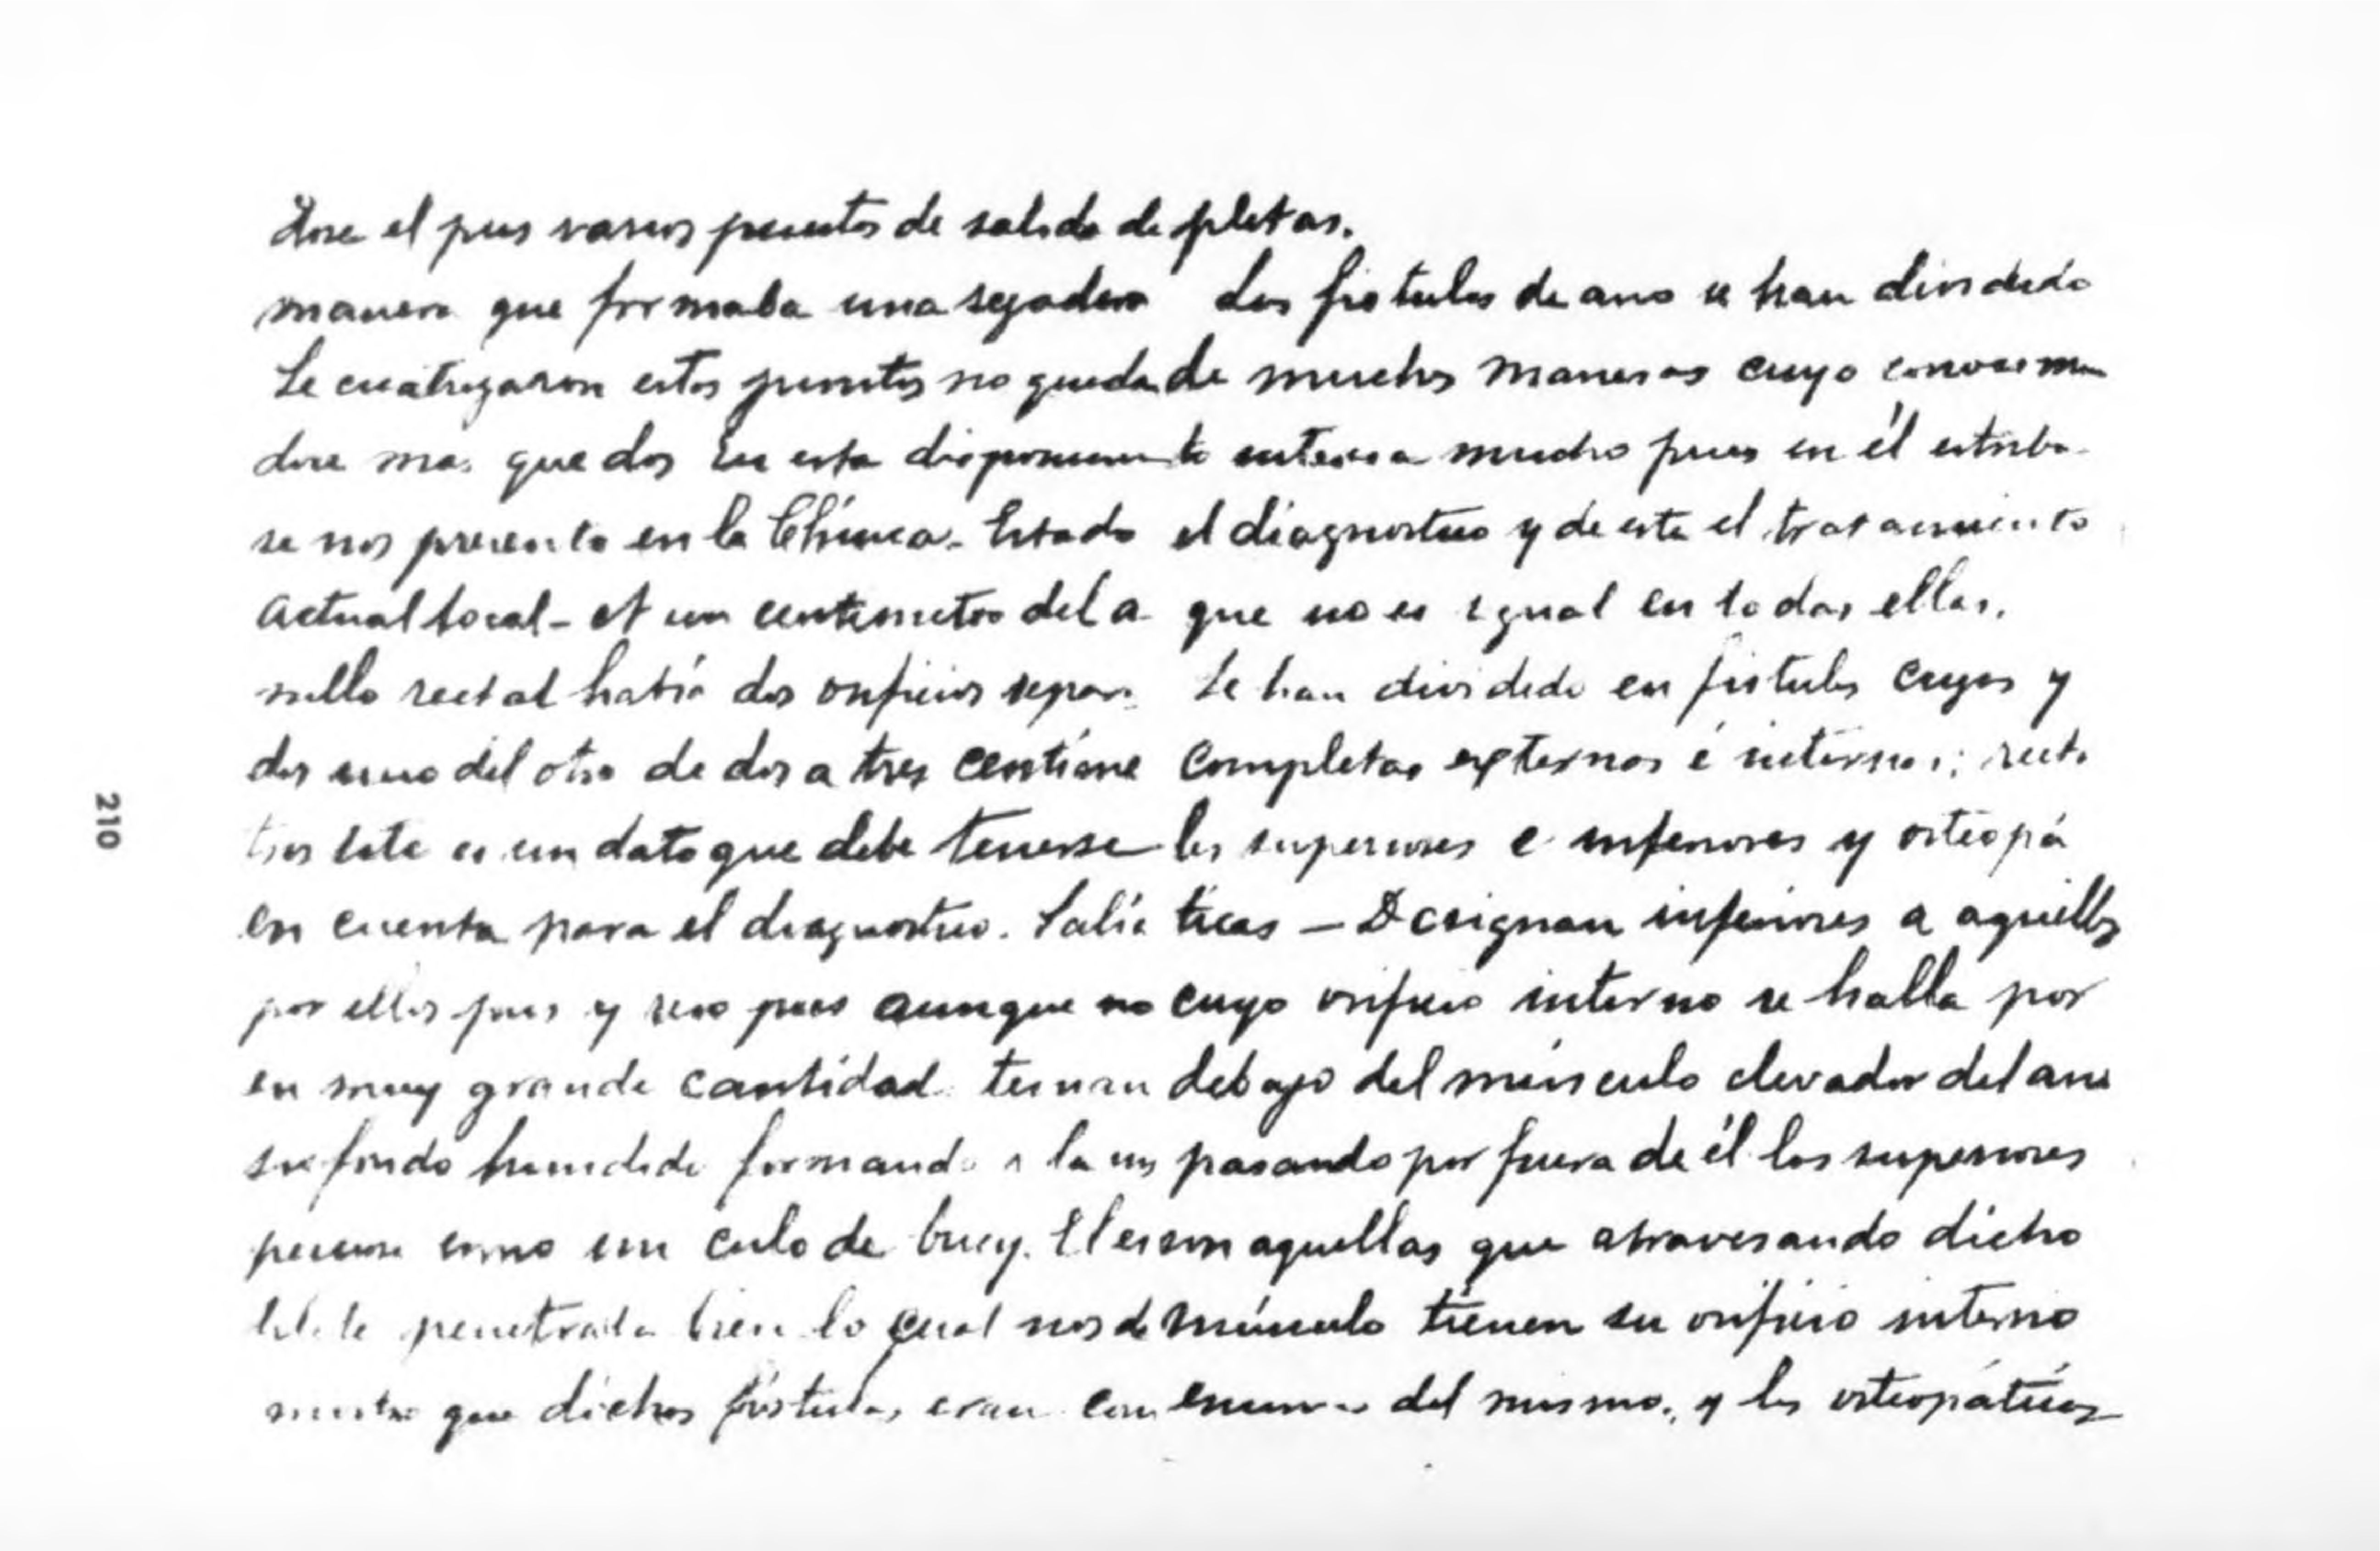 dose el pus varios puntos de salida de
manera que formaba una regadera
Se cicatrizaron estos puntos no queda
dose mas que dos En esta disposicion
se nos presento en la Clínica - Estado
Actual local - A un centimetro del a-
nillo rectal había dos orificios separa
dos uno del otro de dos a tres centime
tros Este es un dato que debe tenerse
en cuenta para el diagnostico. Salía
por ellos pus y pues aunque no
en muy grande cantidad. tenian
su fondo hundido formando a la
como un culo de buey. El es
tilete penetraba bien lo cual nos de
mostro que dichas fístulas eran com
pletas.
Las fistulas de ano se han dividido
de muchas maneras cuyo conocimien
to interesa mucho pues en él estriba
el diagnostico y de este el tratamiento
que no es igual en todas ellas.
Se han dividido en fistulas ciegas y
completas externas é internas; recta
les superiores e inferiores y osteopá
ticas - Designan inferiores a aquellas
cuyo orificio interno se halla por
debajo del músculo elevador del ano
pasando por fuera de él las superiores
son aquellas que atravesando dicho
músculo tienen su orificio interno
encima del mismo, y las osteopáticas
210